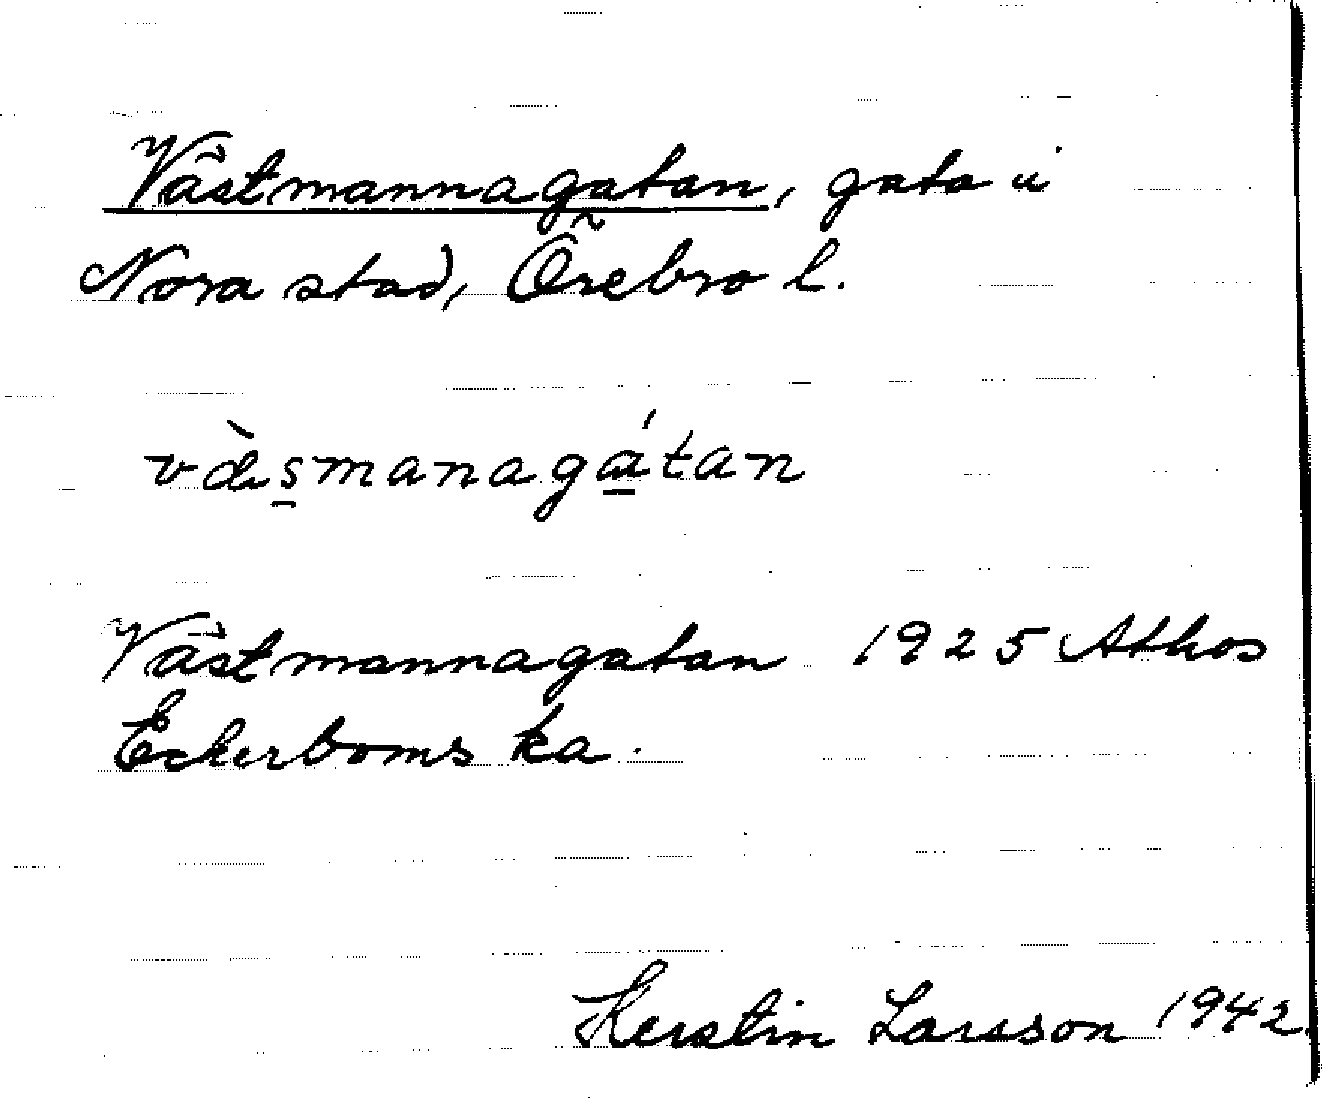 Västmannagatan, gata i
Nora stad, Örebro l.
vä̀s̱managá̱tan
Västmannagatan 1925 Athos
Eckerboms ka.
Kerstin Larsson 1942.